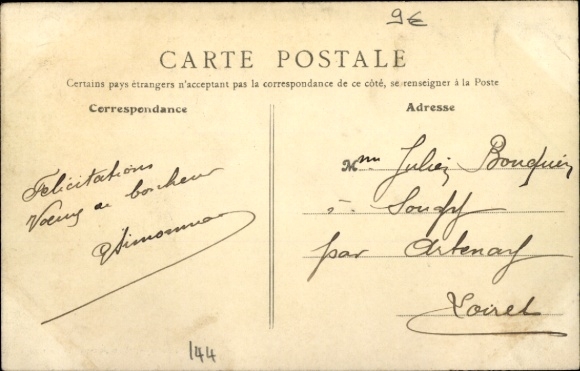 9€
CARTE POSTALE
Certains pays étrangers n'acceptant pas la correspondance de ce côté, se renseigner à la Poste
Correspondance
Adresse
Félicitations
Vœux de bonheur
Mme Julien
à Sougy
par Artenay
Loiret
144